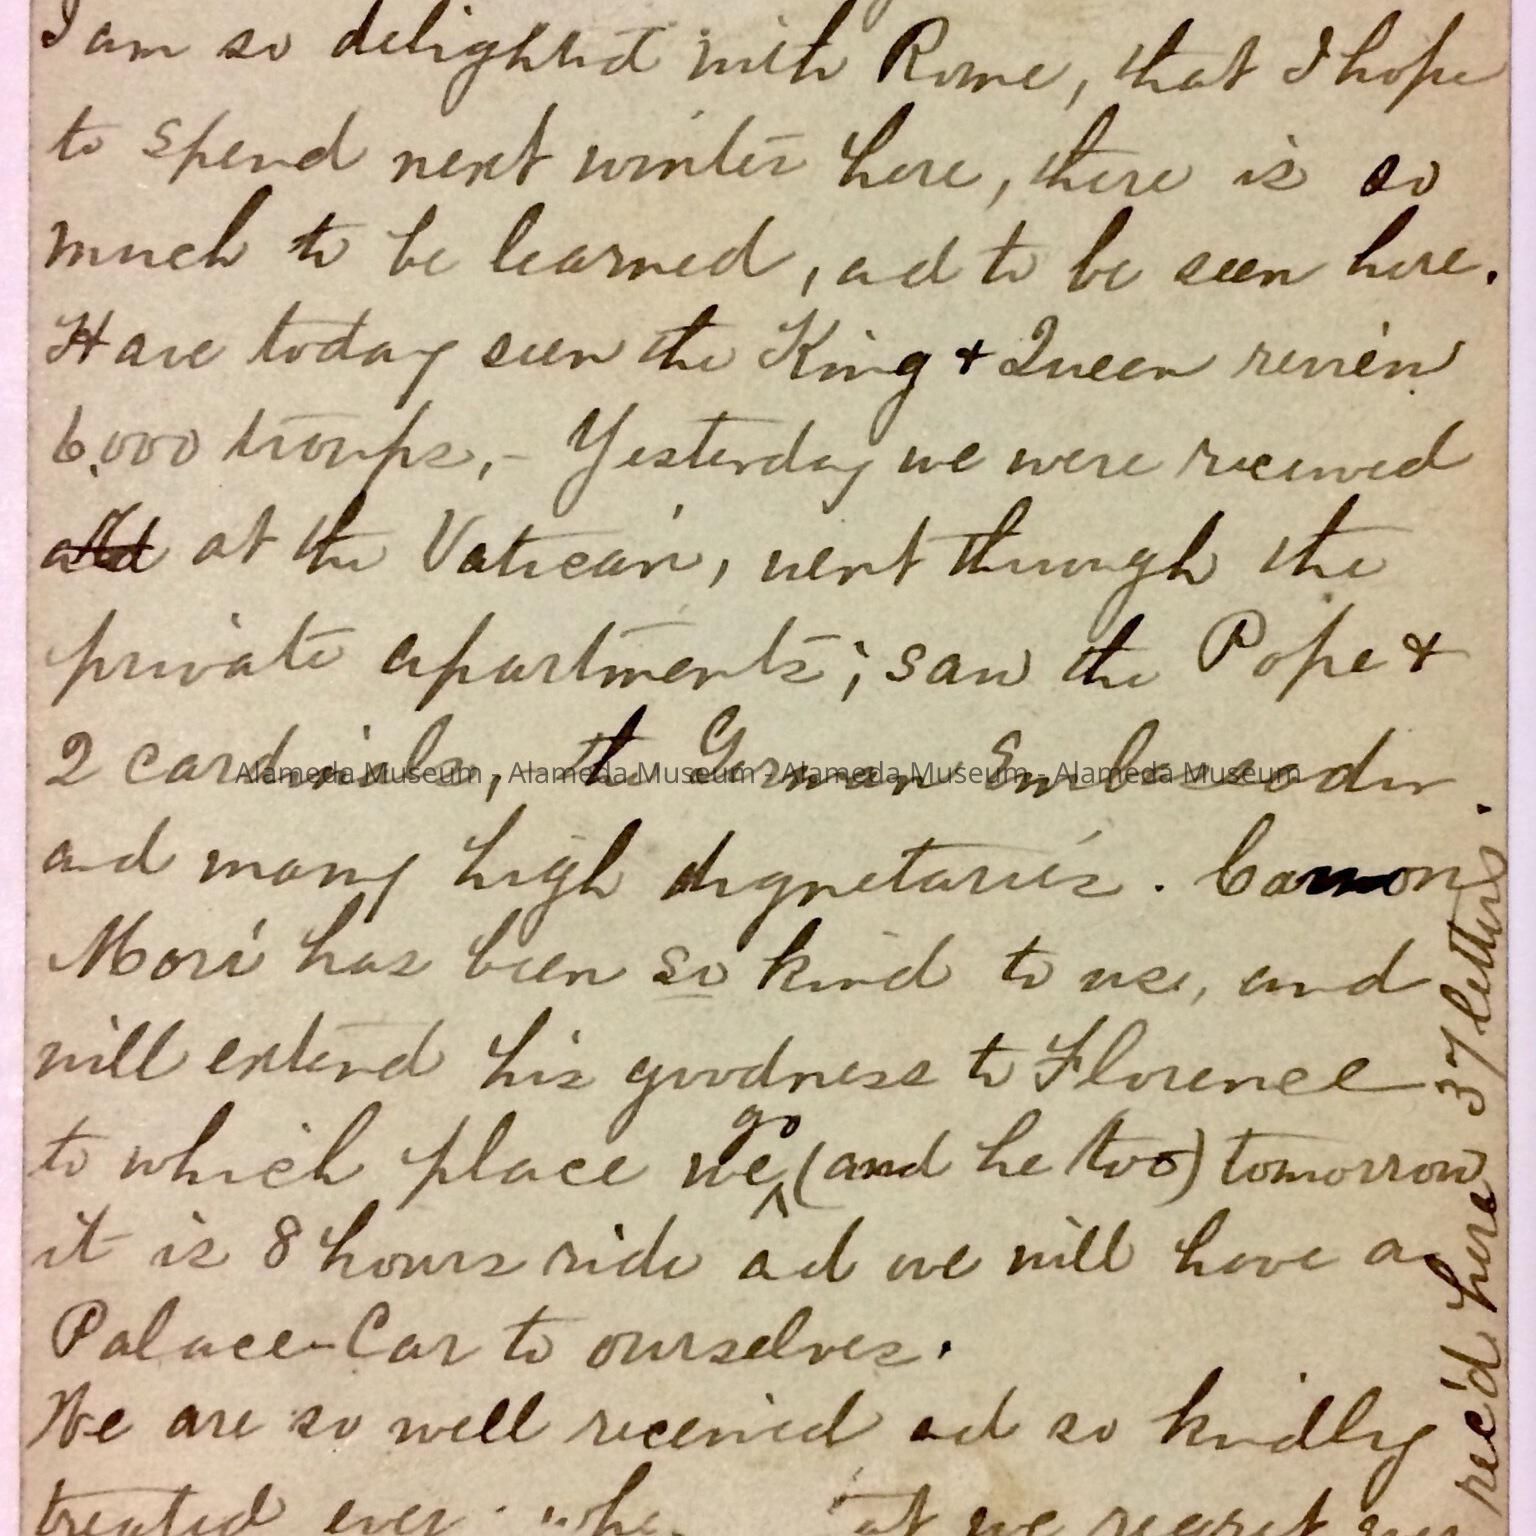 I am so delighted with Rome, that I hope
to spend next winter here, there is so
much to be learned, ad to be seen here.
Have today seen the King + Queen review
6.000 troops,- Yesterday we were received
at the Vatican, went through the
private apartments; saw the Pope +
2 cardinals, the German Embassador
Alameda Museum - Alameda Museum - Alameda Museum - Alameda Museum
and many high dignetaries. Canon
Mori has been so kind to us, and
will extend his goodness to Florence
to which place we go (and he too) tomorrow
it is 8 hours ride ad we will have a
Palace-Car to ourselves.
We are so well received ad so kindly
treated every whe at we regret
rec'd here 37 letters.